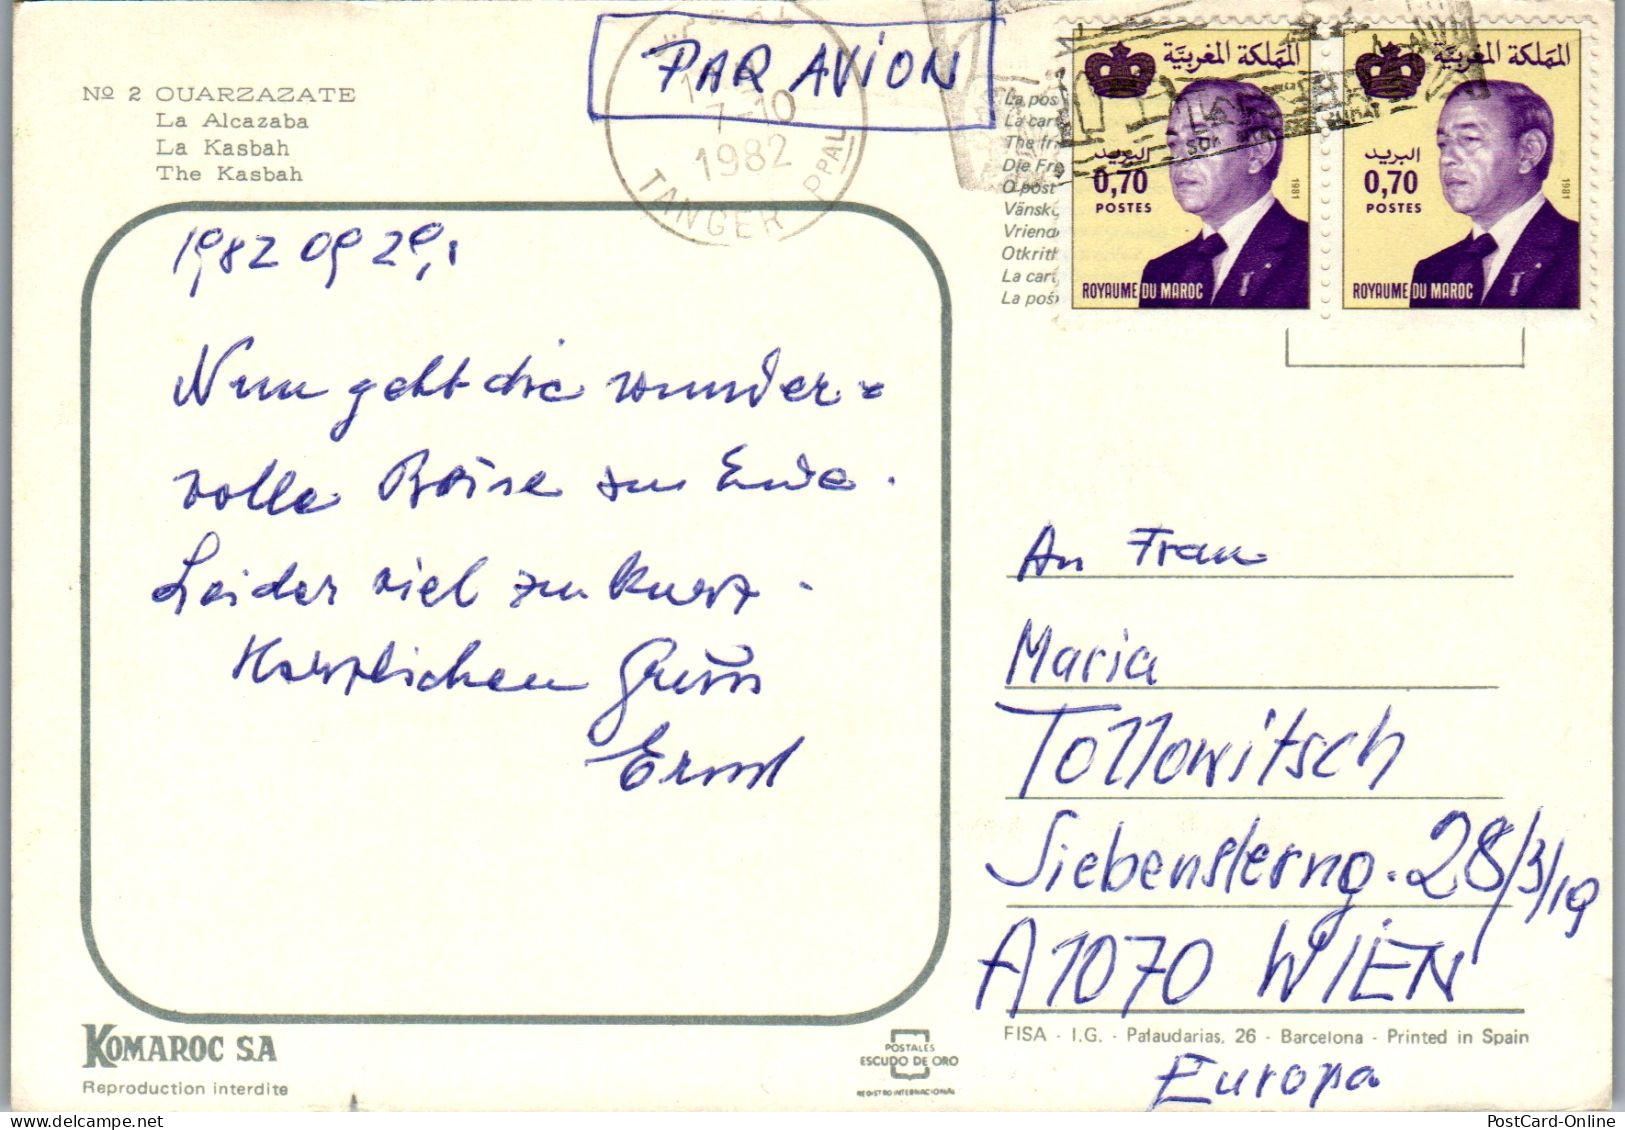 PAR AVION
Nº 2 OUARZAZATE
La Alcazaba
La Kasbah
The Kasbah
7-10
1982
TANGER PPAL
المملكة المغربية
البريد
0,70
POSTES
1981
ROYAUME DU MAROC
المملكة المغربية
البريد
0,70
POSTES
1981
ROYAUME DU MAROC
La pos
La car
The fr
Die Fr
O post
Vänsk
Vriend
Otkrit
La cart
La poš
1982 09 29,
Nun geht die wunder=
volle Reise zu Ende.
Leider viel zu kurz.
Herzlichen Gruss
Ernst
An Frau
Maria
Tollowitsch
Siebensterng. 28/3/19
A 1070 WIEN
Europa
KOMAROC S.A
Reproduction interdite
POSTALES
ESCUDO DE ORO
REGISTRO INTERNACIONAL
FISA - I.G. - Palaudarias, 26 - Barcelona - Printed in Spain
PostCard-Online